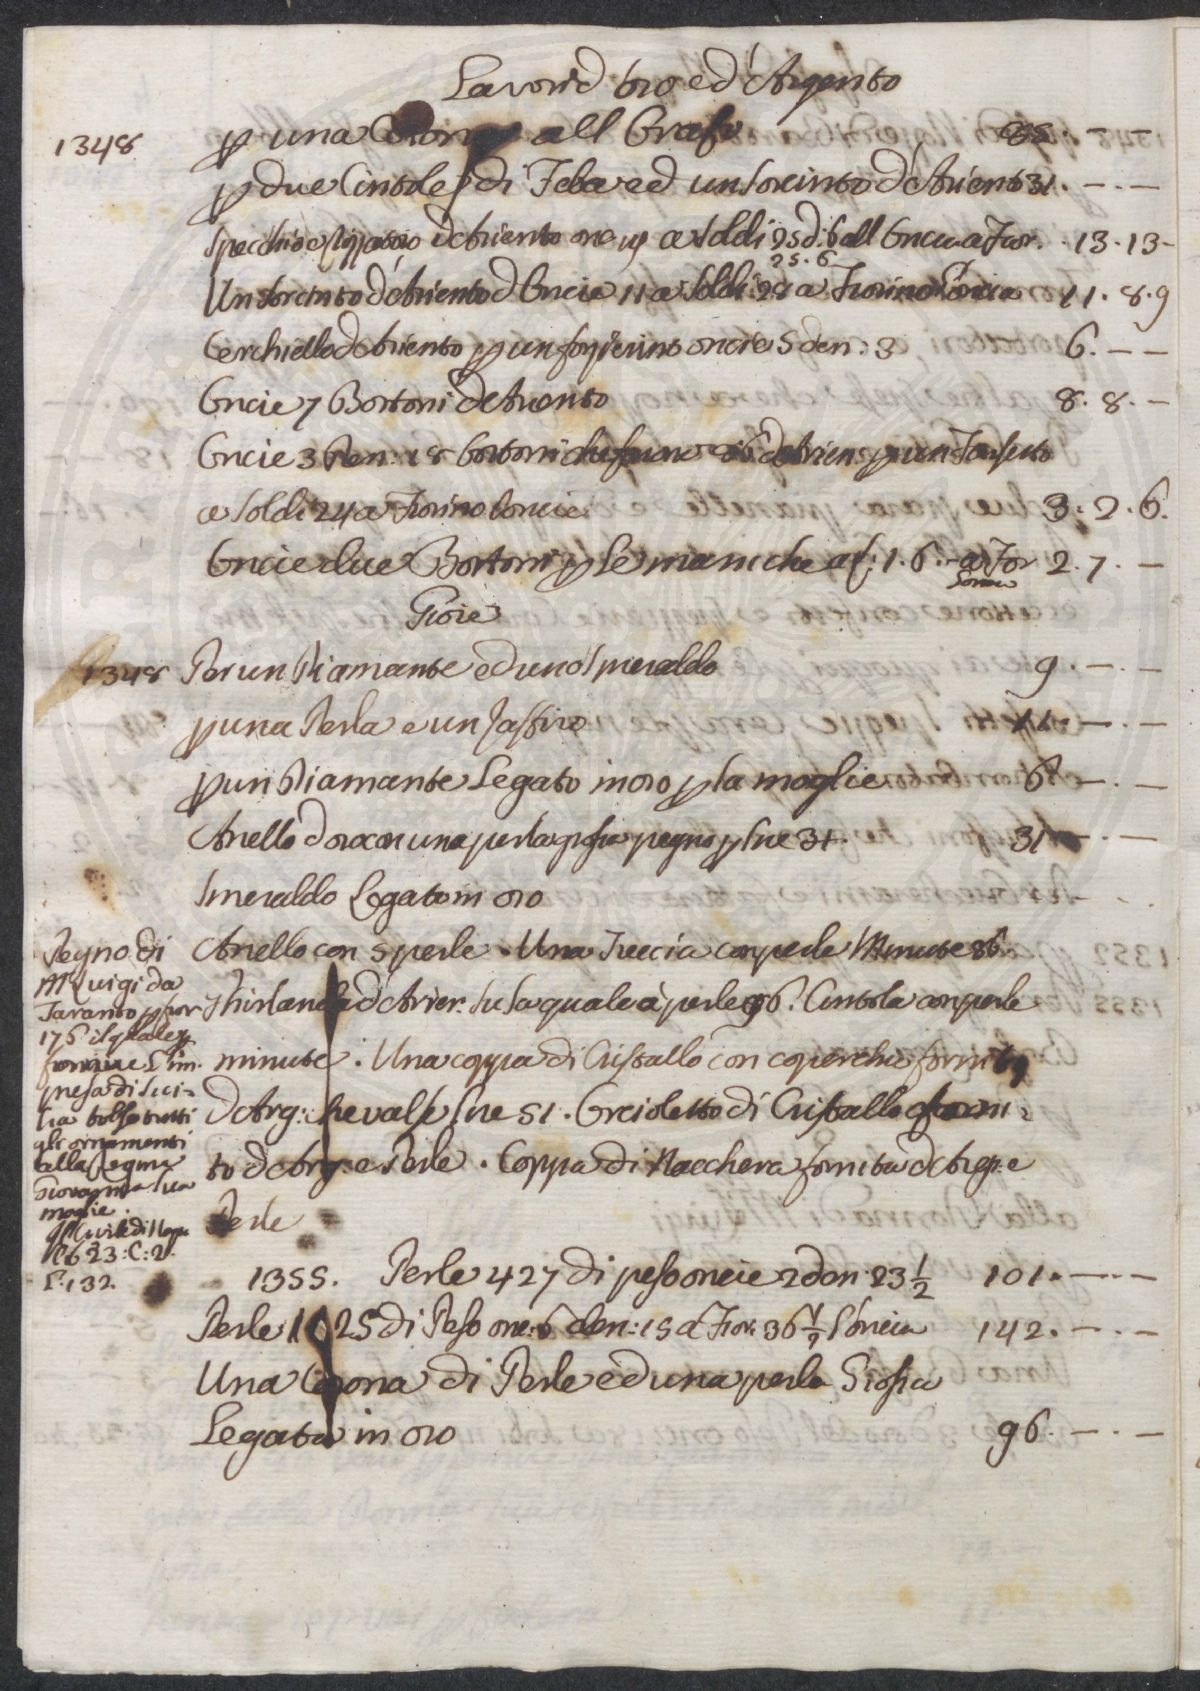 Lavori d'oro ed'Argento
1348 p una Corona all Orafo 38
p due Cintole p di Tela ed un Socinto d'Ariento 31. – . –
Specchio e d'Ariento onc 14 a Soldi 25 d: 6 all Oncia a Fior. 13. 13 –
25. 6
Un Socinto d'Ariento d Oncie 11 a Soldi 28 a Fiorino l'Oncia 11. 8. 9
Cerchiello d'Ariento p un oncie 5 den: 3 6. – –
Oncie 7 Bottoni d'Ariento 8. 8. –
Oncie 3 Den: 18 bottoni che furno 86 d'Arien: p un Farsetto
a Soldi 24 a Fiorino l'oncia 3. 2. 6.
Oncie due Bottoni p le maniche a f: 1. 6. – a Fior 2. 7. –
l'oncia
Gioie
1348 Per un Diamante ed uno Smeraldo 9. – . –
p una Perla e un Zaffiro 11. – . –
p un Diamante Legato in oro p la moglie 6. – . –
Anello d'oro con una perla grossa pegno p lire 31. 31 – . –
Smeraldo Legato in oro
Anello con 5 perle. Una Treccia con perle Minute 86.
Ghirlanda d'Arien: su la quale à perle 96. Cintola con perle
minute. Una coppa di Cristallo con coperchio fornito
d'Arg: che valse lire 51. Orcioletto di Cristallo forni:
to d'Arg: e Perle. Coppa di Nacchera fornita d'Arg: e
Perle
Pegno di
Mr Luigi da
Taranto p fior
175 il quale p
fornire l'im:
presa di Sici:
lia tolse tutti
gli ornamenti
alla Regina
Giovanna sua
moglie.
Civile di Nap
N 623: C: 2.
F: 132.
1355. Perle 427 di peso oncie 2 den. 23 1/2 101. – . –
Perle 1025 di Peso onc: 6 den: 15 a Fior: 36 1/2 l'oncia 142. – . –
Una Corona di Perle ed una perla Grossa
Legata in oro 96. – . –